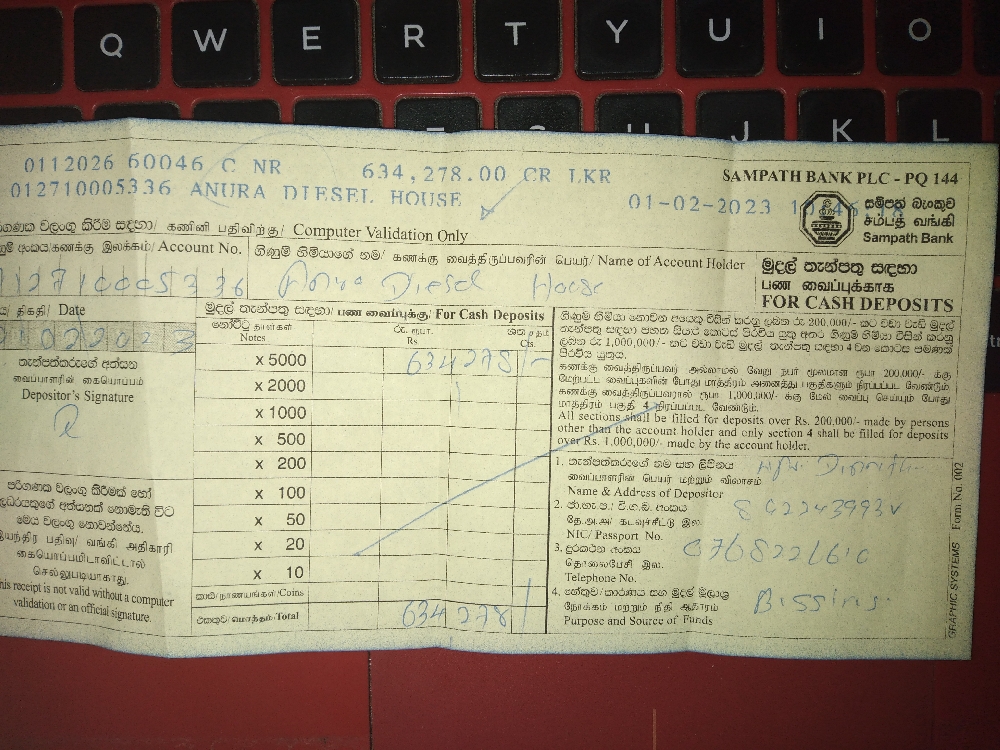 Q W E R T Y U I O
J K L
0112026 60046 C NR 634,278.00 CR LKR
012710005336 ANURA DIESEL HOUSE
01-02-2023
SAMPATH BANK PLC - PQ 144
සම්පත් බැංකුව
சம்பத் வங்கி
Sampath Bank
වලංගු කිරීම සඳහා/ கணினி பதிவிற்கு/ Computer Validation Only
கணக்கு இலக்கம்/ Account No.
ගිණුම් හිමියාගේ නම/ கணக்கு வைத்திருப்பவரின் பெயர்/ Name of Account Holder
Diesel House
මුදල් තැන්පතු සඳහා
பண வைப்புக்காக
FOR CASH DEPOSITS
திகதி/ Date
01022023
තැන්පත්කරුගේ අත්සන
வைப்பாளரின் கையொப்பம்
Depositor's Signature
මුදල් තැන්පතු සඳහා/ பண வைப்புக்கு/ For Cash Deposits
නෝට්ටු தாள்கள்
Notes
රු. ரூபா.
Rs
ශත சதம்
Cts.
x 5000 634278/-
x 2000
x 1000
x 500
x 200
x 100
x 50
x 20
x 10
කාසි/நாணயங்கள்/Coins
එකතුව/மொத்தம்/Total 634278/
පරිගණක වලංගු කිරීමක් හෝ
අත්සනක් නොමැති විට
මෙය වලංගු නොවන්නේය.
பதிவு/ வங்கி அதிகாரி
கையொப்பமிடாவிட்டால்
செல்லுபடியாகாது.
his receipt is not valid without a computer
validation or an official signature.
கணக்கு வைத்திருப்பவர் அல்லாமல் வேறு நபர் மூலமான ரூபா 200,000/- க்கு
மேற்பட்ட வைப்புகளின் போது மாத்திரம் அனைத்து பகுதிகளும் நிரப்பப்பட வேண்டும்.
கணக்கு வைத்திருப்பவரால் ரூபா 1,000,000/- க்கு மேல் வைப்பு செய்யும் போது
மாத்திரம் பகுதி 4 நிரப்பப்பட வேண்டும்.
All sections shall be filled for deposits over Rs. 200,000/- made by persons
other than the account holder and only section 4 shall be filled for deposits
over Rs. 1,000,000/- made by the account holder.
1. තැන්පත්කරුගේ නම සහ ලිපිනය
வைப்பாளரின் பெயர் மற்றும் விலாசம்
Name & Address of Depositor
2. ජා.හැ.ප./ වි.ග.බ. අංකය
தே.அ.அ/ கடவுச்சீட்டு இல.
NIC/ Passport No.
3. දුරකථන අංකය
தொலைபேசி இல.
Telephone No.
4. හේතුව/ කාරණය සහ මුදල් මූලාශ්‍ර
நோக்கம் மற்றும் நிதி ஆதாரம்
Purpose and Source of Funds
GRAPHIC SYSTEMS Form No. 002